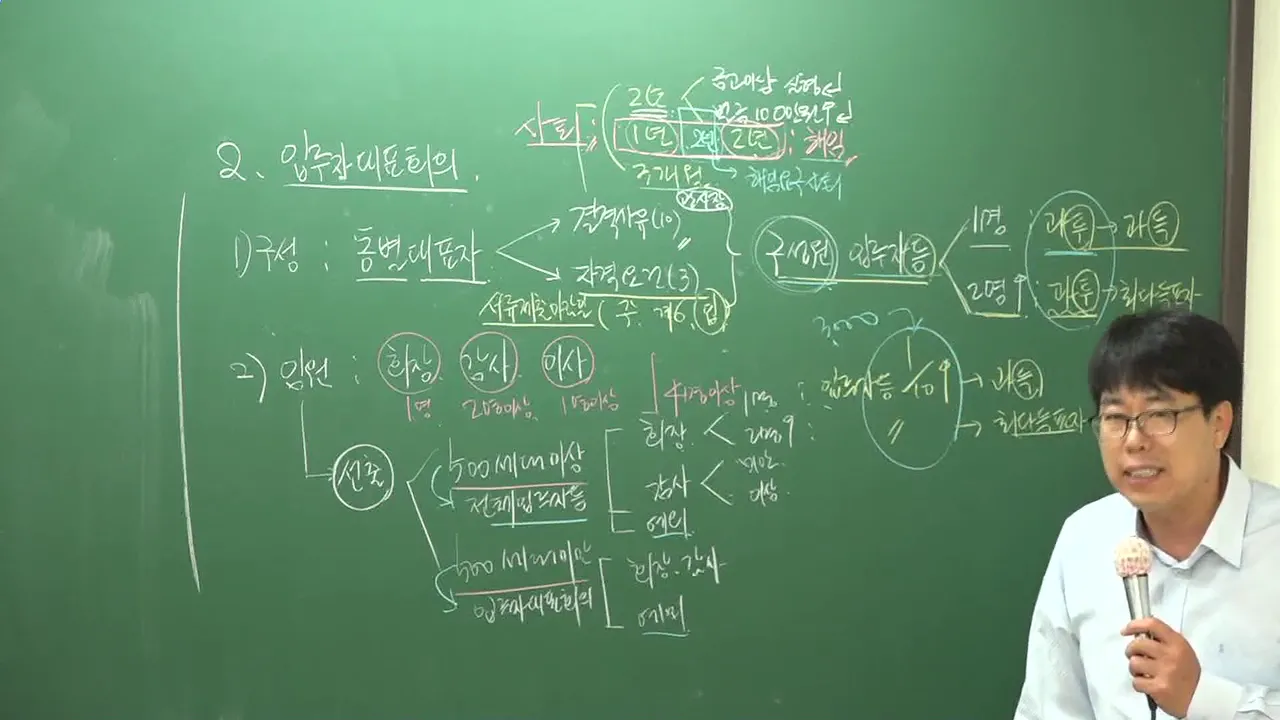 2. 입주자대표회의.
사퇴 :
2년
금고이상 실형선
벌금100만원
1년 2년 2년 : 해임
3개월
해임 사퇴
1) 구성 : 동별대표자
결격사유(10)
자격요건(3)
서류제출마감일 ( 주. 계6.
구성원 입주자등
1명 과투 → 과득
2명↑ 과투 → 최다득표자
2) 임원 : 회장. 감사. 이사.
1명 2명이상. 1명이상 4명이상
3000
1명 : 입주자등 1/10↑ → 과득
회장 2명↑ : 〃 → 최다득표자
선출
500세대이상
전체입주자등
감사 미만. 이상.
예외
500세대미만
입주자대표회의
회장. 감사
예외